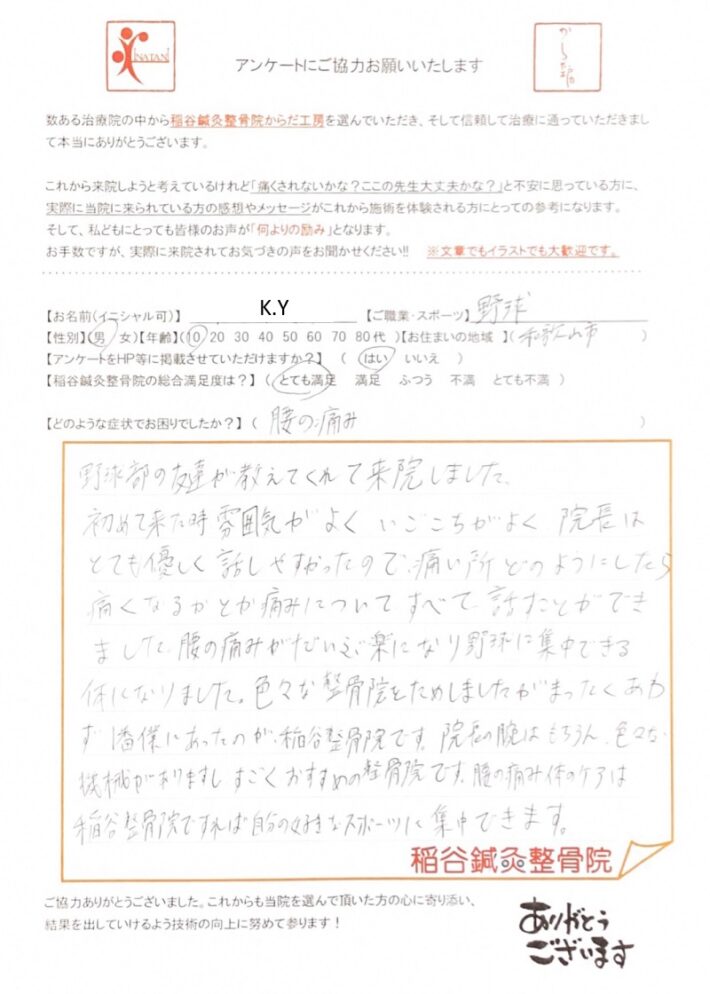 INATANI
アンケートにご協力お願いいたします
から
数ある治療院の中から稲谷鍼灸整骨院からだ工房を選んでいただき、そして信頼して治療に通っていただきまし
て本当にありがとうございます。
これから来院しようと考えているけれど「痛くされないかな？ここの先生大丈夫かな？」と不安に思っている方に、
実際に当院に来られている方の感想やメッセージがこれから施術を体験される方にとっての参考になります。
そして、私どもにとっても皆様のお声が「何よりの励み」となります。
お手数ですが、実際に来院されてお気づきの声をお聞かせください!! ※文章でもイラストでも大歓迎です。
【お名前(イニシャル可)】 K.Y 【ご職業・スポーツ】 野球
【性別】(男 女)【年齢】(10 20 30 40 50 60 70 80代 )【お住まいの地域 】( 和歌山市 )
【アンケートをHP等に掲載させていただけますか？】 ( はい いいえ )
【稲谷鍼灸整骨院の総合満足度は？】 ( とても満足 満足 ふつう 不満 とても不満 )
【どのような症状でお困りでしたか？】( 腰の痛み )
野球部の友達が教えてくれて来院しました。
初めて来た時雰囲気がよく いごこちがよく 院長は
とても優しく話しやすかったので、痛い所どのようにしたら
痛くなるかとか痛みについてすべて話すことができ
ました。腰の痛みがだいぶ楽になり野球に集中できる
体になりました。色々な整骨院をためしましたがまったくあわ
ず1番僕にあったのが、稲谷整骨院です。院長の腕はもちろん、色々な
機械がありますし すごくおすすめの整骨院です。腰の痛み体のケアは
稲谷整骨院ですれば自分の好きなスポーツに集中できます。
稲谷鍼灸整骨院
ご協力ありがとうございました。これからも当院を選んで頂いた方の心に寄り添い、
結果を出していけるよう技術の向上に努めて参ります！
ありがとう
ございます